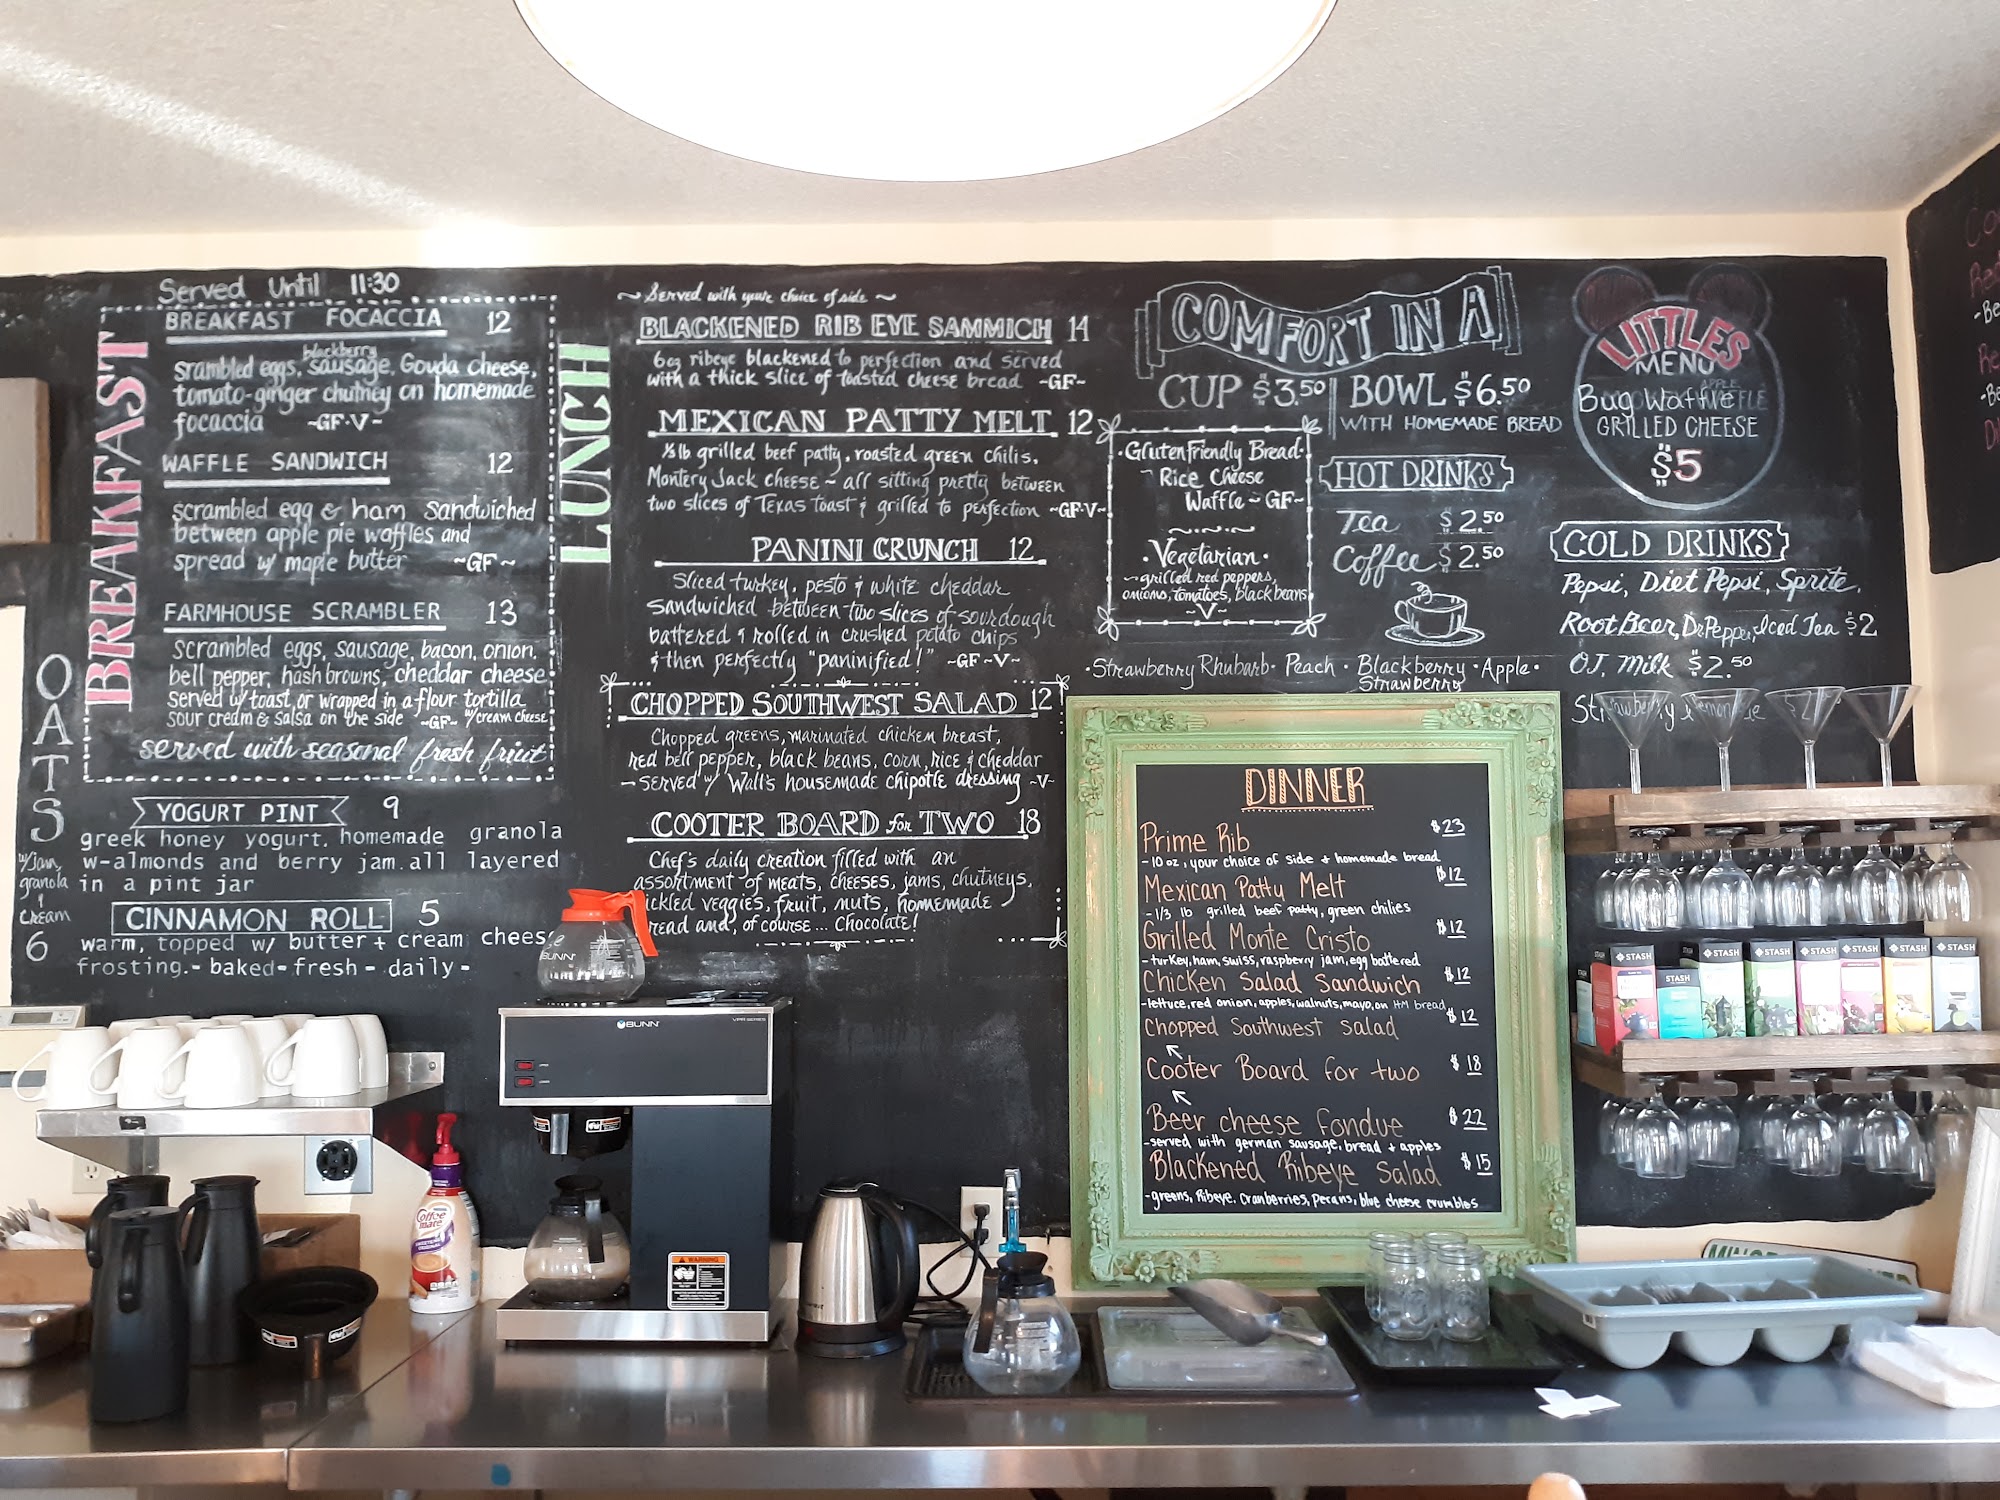 Served Until 11:30
BREAKFAST
BREAKFAST FOCACCIA 12
srambled eggs, blackberry sausage, Gouda cheese,
tomato-ginger chutney on homemade
focaccia ~GF·V~
WAFFLE SANDWICH 12
scrambled egg & ham sandwiched
between apple pie waffles and
spread w/ maple butter ~GF~
FARMHOUSE SCRAMBLER 13
scrambled eggs, sausage, bacon, onion,
bell pepper, hash browns, cheddar cheese
served w/ toast, or wrapped in a flour tortilla
sour cream & salsa on the side ~GF~ w/ cream cheese
served with seasonal fresh fruit
OATS
w/ jam,
granola
&
cream
6
YOGURT PINT 9
greek honey yogurt, homemade granola
w-almonds and berry jam. all layered
in a pint jar
CINNAMON ROLL 5
warm, topped w/ butter + cream cheese
frosting.- baked-fresh - daily-
LUNCH
~ Served with your choice of side ~
BLACKENED RIB EYE SAMMICH 14
6oz ribeye blackened to perfection and served
with a thick slice of toasted cheese bread ~GF~
MEXICAN PATTY MELT 12
⅓lb grilled beef patty, roasted green chilis,
Montery Jack cheese ~ all sitting pretty between
two slices of Texas Toast & grilled to perfection ~GF·V~
PANINI CRUNCH 12
Sliced turkey, pesto & white cheddar
sandwiched between two slices of sourdough
battered & rolled in crushed potato chips
& then perfectly "paninified!" ~GF~V~
CHOPPED SOUTHWEST SALAD 12
Chopped greens, marinated chicken breast,
red bell pepper, black beans, corn, rice & cheddar
- served w/ Wall's housemade chipotle dressing ~V~
COOTER BOARD for TWO 18
Chef's daily creation filled with an
assortment of meats, cheeses, jams, chutneys,
ickled veggies, fruit, nuts, homemade
read and, of course... Chocolate!
COMFORT IN A
CUP $3.50 BOWL $6.50
WITH HOMEMADE BREAD
·Gluten Friendly Bread·
Rice Cheese
Waffle ~GF~
·Vegetarian·
~grilled red peppers,
onions, tomatoes, black beans
~V~
HOT DRINKS
Tea $2.50
Coffee $2.50
·Strawberry Rhubarb· Peach · Blackberry · Apple ·
Strawberry
LITTLES
MENU
Bug Waffle
GRILLED CHEESE
$5
COLD DRINKS
Pepsi, Diet Pepsi, Sprite,
Root Beer, Dr Pepper, Iced Tea $2
OJ, Milk $2.50
Strawberry Lemonade
DINNER
Prime Rib $23
-10 oz, your choice of side + homemade bread
Mexican Patty Melt $12
-1/3 lb grilled beef patty, green chilies
Grilled Monte Cristo $12
-turkey, ham, swiss, raspberry jam, egg battered
Chicken Salad Sandwich $12
-lettuce, red onion, apples, walnuts, mayo, on HM bread
Chopped Southwest Salad $12
Cooter Board for two $18
Beer cheese fondue $22
-served with german sausage, bread + apples
Blackened Ribeye Salad $15
-greens, Ribeye, cranberries, pecans, blue cheese crumbles
STASH
STASH
STASH
STASH
STASH
STASH
STASH
STASH
BUNN
BUNN
VPR SERIES
WARNING
Nestle
Coffee
mate